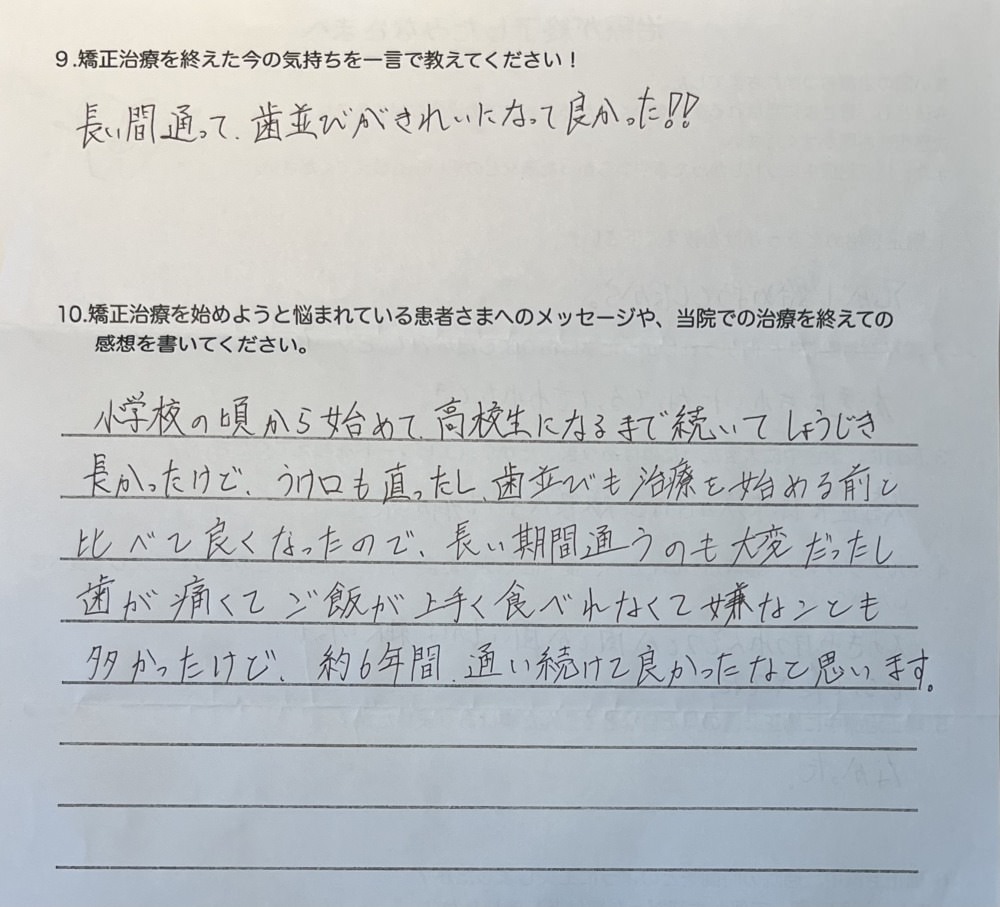 9.矯正治療を終えた今の気持ちを一言で教えてください！
長い間通って、歯並びがきれいになって良かった!!
10.矯正治療を始めようと悩まれている患者さまへのメッセージや、当院での治療を終えての
感想を書いてください。
小学校の頃から始めて、高校生になるまで続いてしょうじき
長かったけど、うけ口も直ったし、歯並びも治療を始める前と
比べて良くなったので、長い期間通うのも大変だったし
歯が痛くてご飯が上手く食べれなくて嫌なことも
多かったけど、約6年間、通い続けて良かったなと思います。